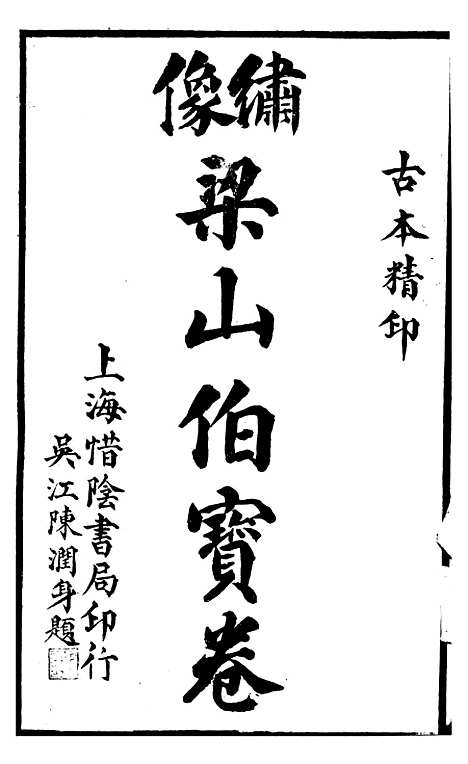 古本精印
繡像
梁山伯寶卷
上海惜陰書局印行
吳江陳潤身題